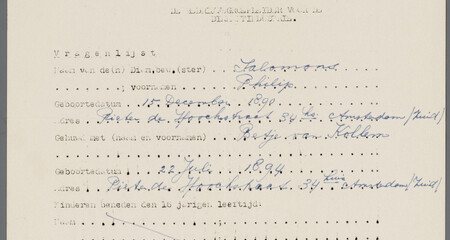 V r a g e n l i j s t
Naam van de(n) Dien.bew.(ster) Salamons
voornamen Philip
Geboortedatum 15 December 1890
Adres Pieter de Hooghstraat 34 hs Amsterdam (Zuid)
Gehuwd met (naam en voornamen) Betje van Kollem
Geboortedatum 22 Juli 1894
Adres Pieter de Hooghstraat 34 huis Amsterdam (Zuid)
Kinderen beneden den 16 jarigen leeftijd:
Naam